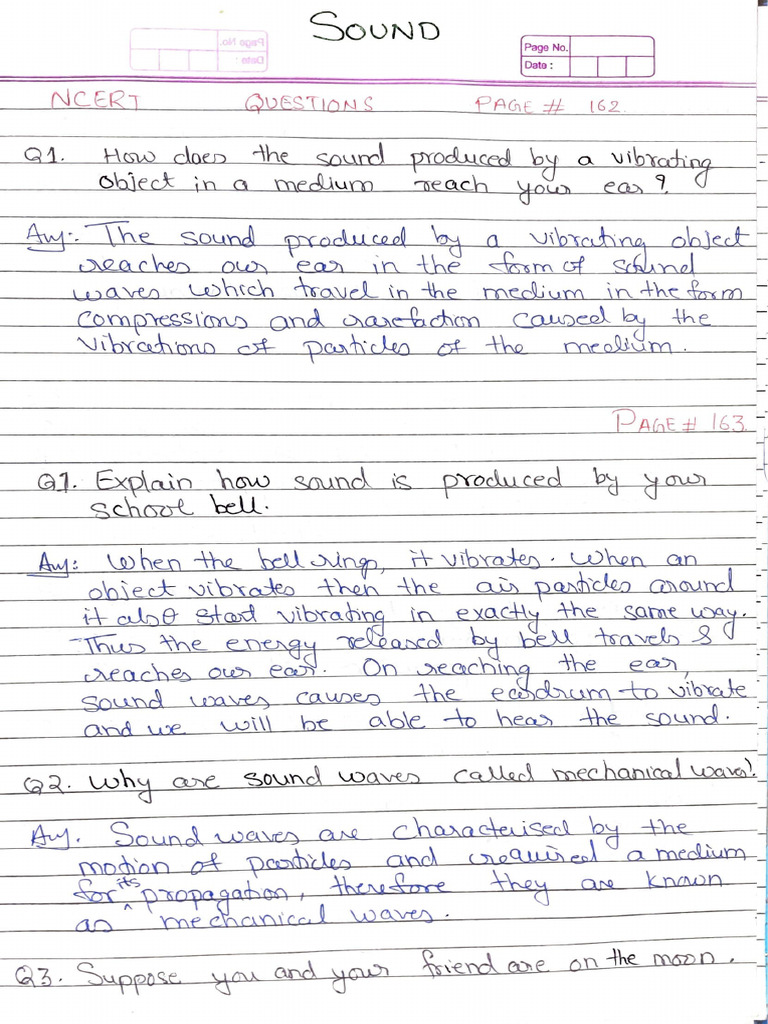 SOUND
Page No.
Date :
NCERT QUESTIONS PAGE # 162
Q1. How does the sound produced by a vibrating
object in a medium reach your ear?
Ans:- The sound produced by a vibrating object
reaches our ear in the form of sound
waves which travel in the medium in the form
compressions and rarefaction caused by the
vibrations of particles of the medium.
PAGE # 163.
Q1. Explain how sound is produced by your
school bell.
Ans: When the bell rings, it vibrates. When an
object vibrates then the air particles around
it also start vibrating in exactly the same way.
Thus the energy released by bell travels &
reaches our ear. On reaching the ear,
sound waves causes the eardrum to vibrate
and we will be able to hear the sound.
Q2. Why are sound waves called mechanical waves?
Ans. Sound waves are characterised by the
motion of particles and required a medium
for its propagation, therefore they are known
as mechanical waves.
Q3. Suppose you and your friend are on the moon.